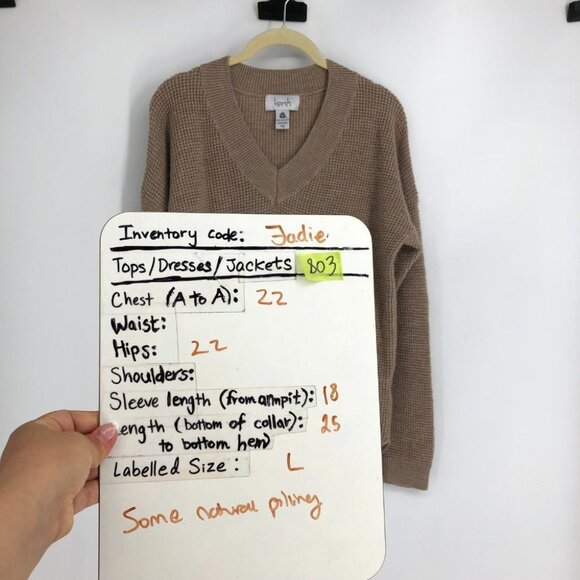 kersh
Inventory code: Jadie
Tops/Dresses/Jackets 803
Chest (A to A): 22
Waist:
Hips: 22
Shoulders:
Sleeve length (from armpit): 18
Length (bottom of collar): 25
to bottom hem)
Labelled Size: L
Some natural pilling